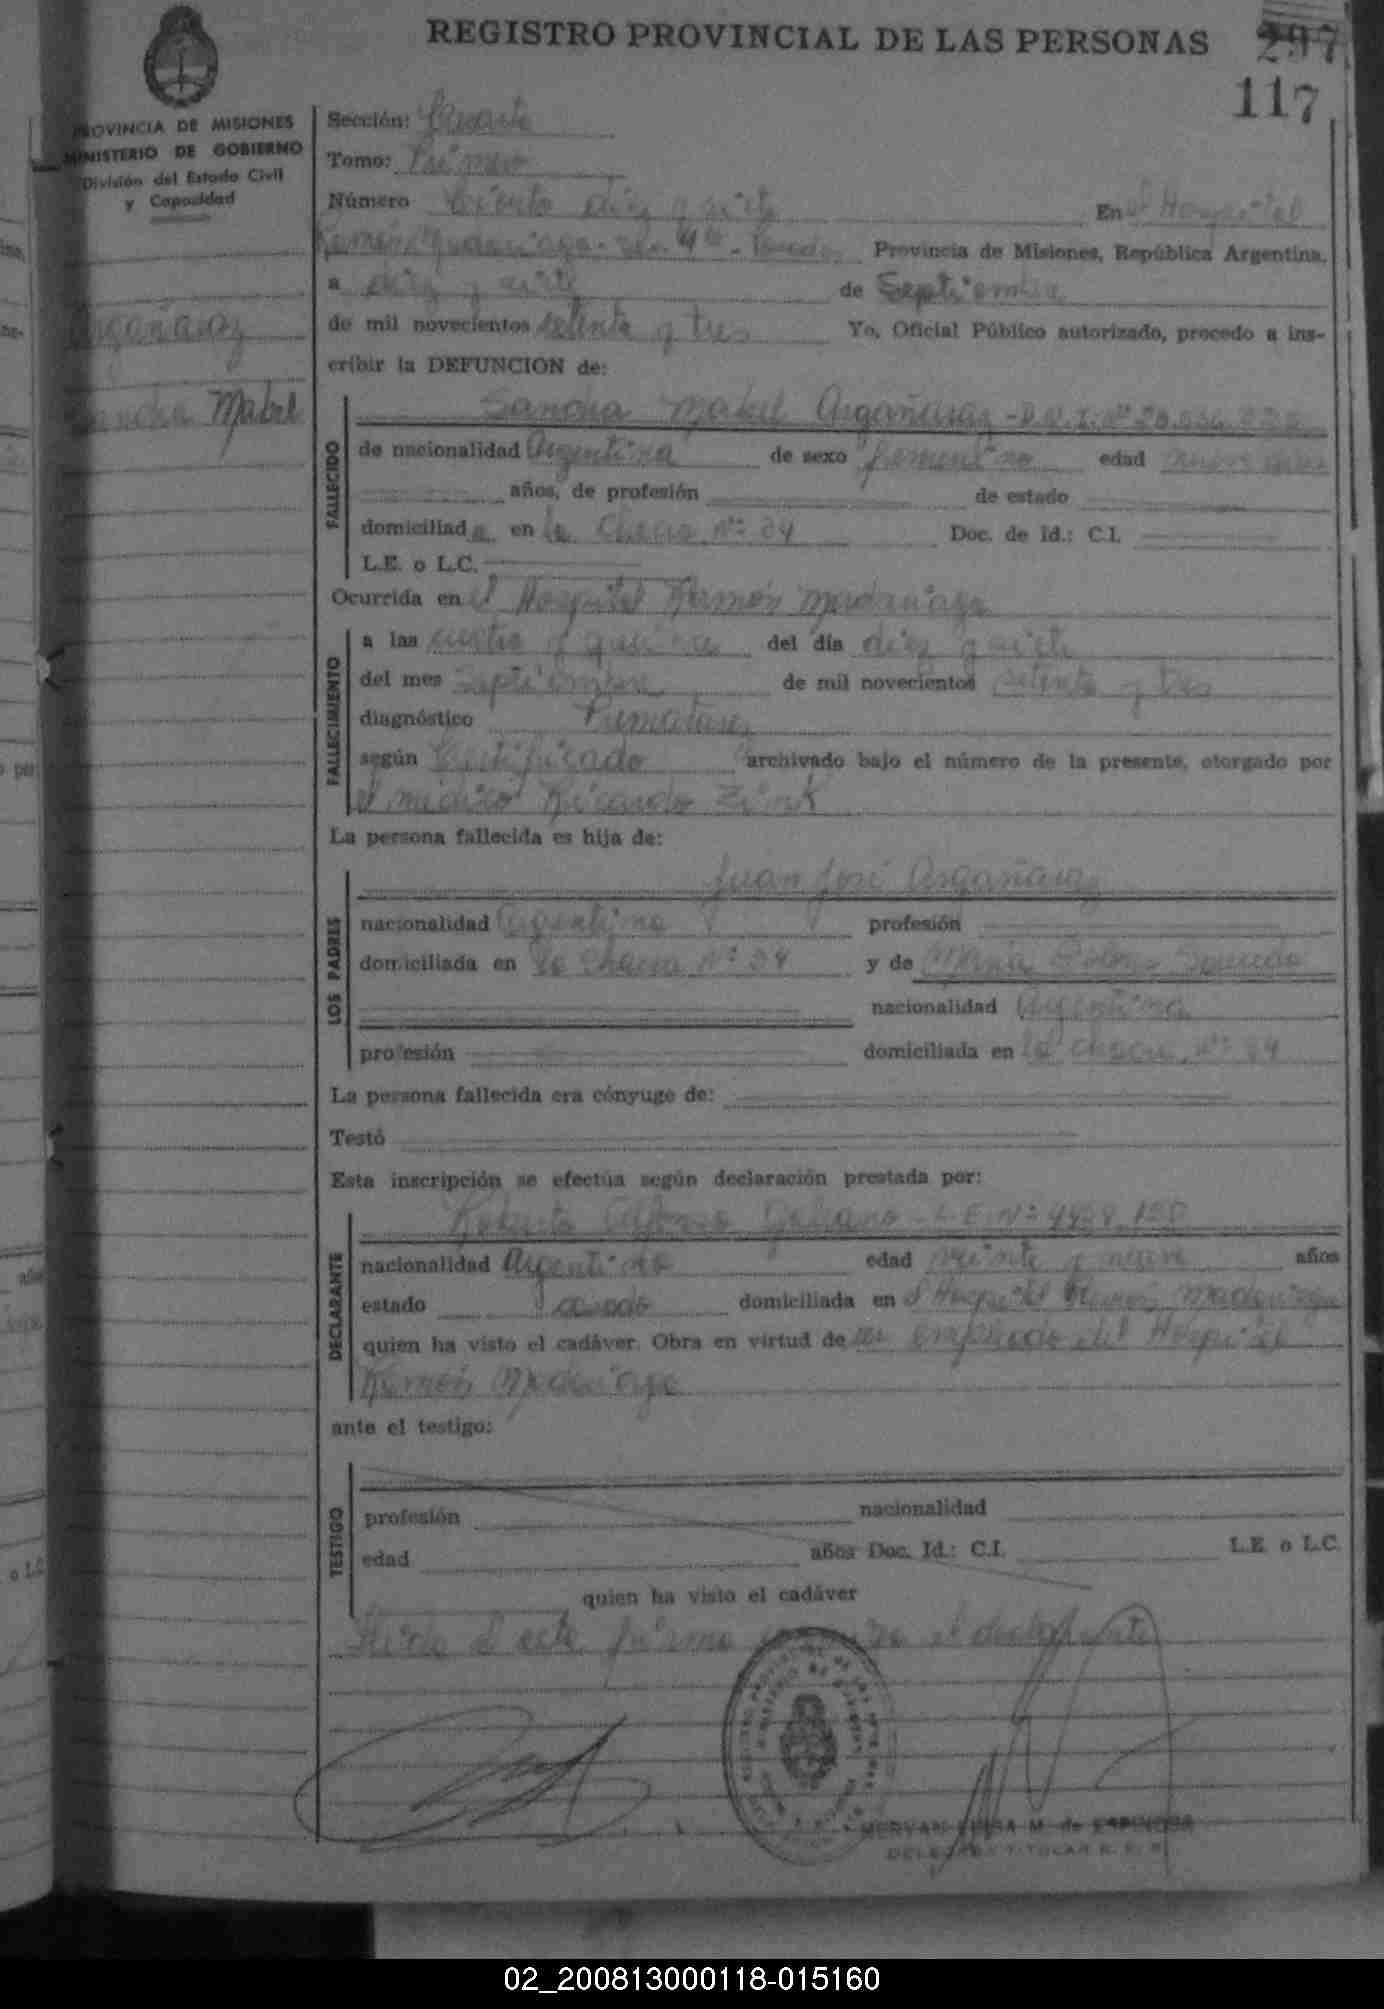 REGISTRO PROVINCIAL DE LAS PERSONAS
297
117
PROVINCIA DE MISIONES
MINISTERIO DE GOBIERNO
División del Estado Civil
y Capacidad
Argañaraz
Sandra Mabel
Sección: Cuarta
Tomo: Primero
Número Ciento diez y siete En el Hospital
Ramón Madariaga Provincia de Misiones, República Argentina,
a diez y siete de Septiembre
de mil novecientos setenta y tres Yo, Oficial Público autorizado, procedo a ins-
cribir la DEFUNCION de:
FALLECIDO
Sandra Mabel Argañaraz - D.N.I. Nº
de nacionalidad Argentina de sexo femenino edad
años, de profesión de estado
domiciliada en la Chacra Nº 34 Doc. de Id.: C.I.
L.E. o L.C.
Ocurrida en el Hospital Ramón Madariaga
FALLECIMIENTO
a las cuatro y quince del día diez y siete
del mes Septiembre de mil novecientos setenta y tres
diagnóstico Prematurez
según Certificado archivado bajo el número de la presente, otorgado por
el médico Ricardo Zink
La persona fallecida es hija de:
LOS PADRES
Juan José Argañaraz
nacionalidad Argentina profesión
domiciliada en la Chacra Nº 34 y de María
nacionalidad Argentina
profesión domiciliada en la chacra Nº 34
La persona fallecida era cónyuge de:
Testó
Esta inscripción se efectúa según declaración prestada por:
DECLARANTE
Roberto Alfonso Galeano - L.E. Nº
nacionalidad Argentino edad veinte y nueve años
estado casado domiciliada en el Hospital Ramón Madariaga
quien ha visto el cadáver. Obra en virtud de ser empleado del Hospital
Ramón Madariaga
ante el testigo:
TESTIGO
profesión nacionalidad
edad años Doc. Id.: C.I. L.E. o L.C.
quien ha visto el cadáver
Leída el acta firma el declarante
M. de ESPINOSA
DELEGADA TITULAR R. P. P.
02_200813000118-015160